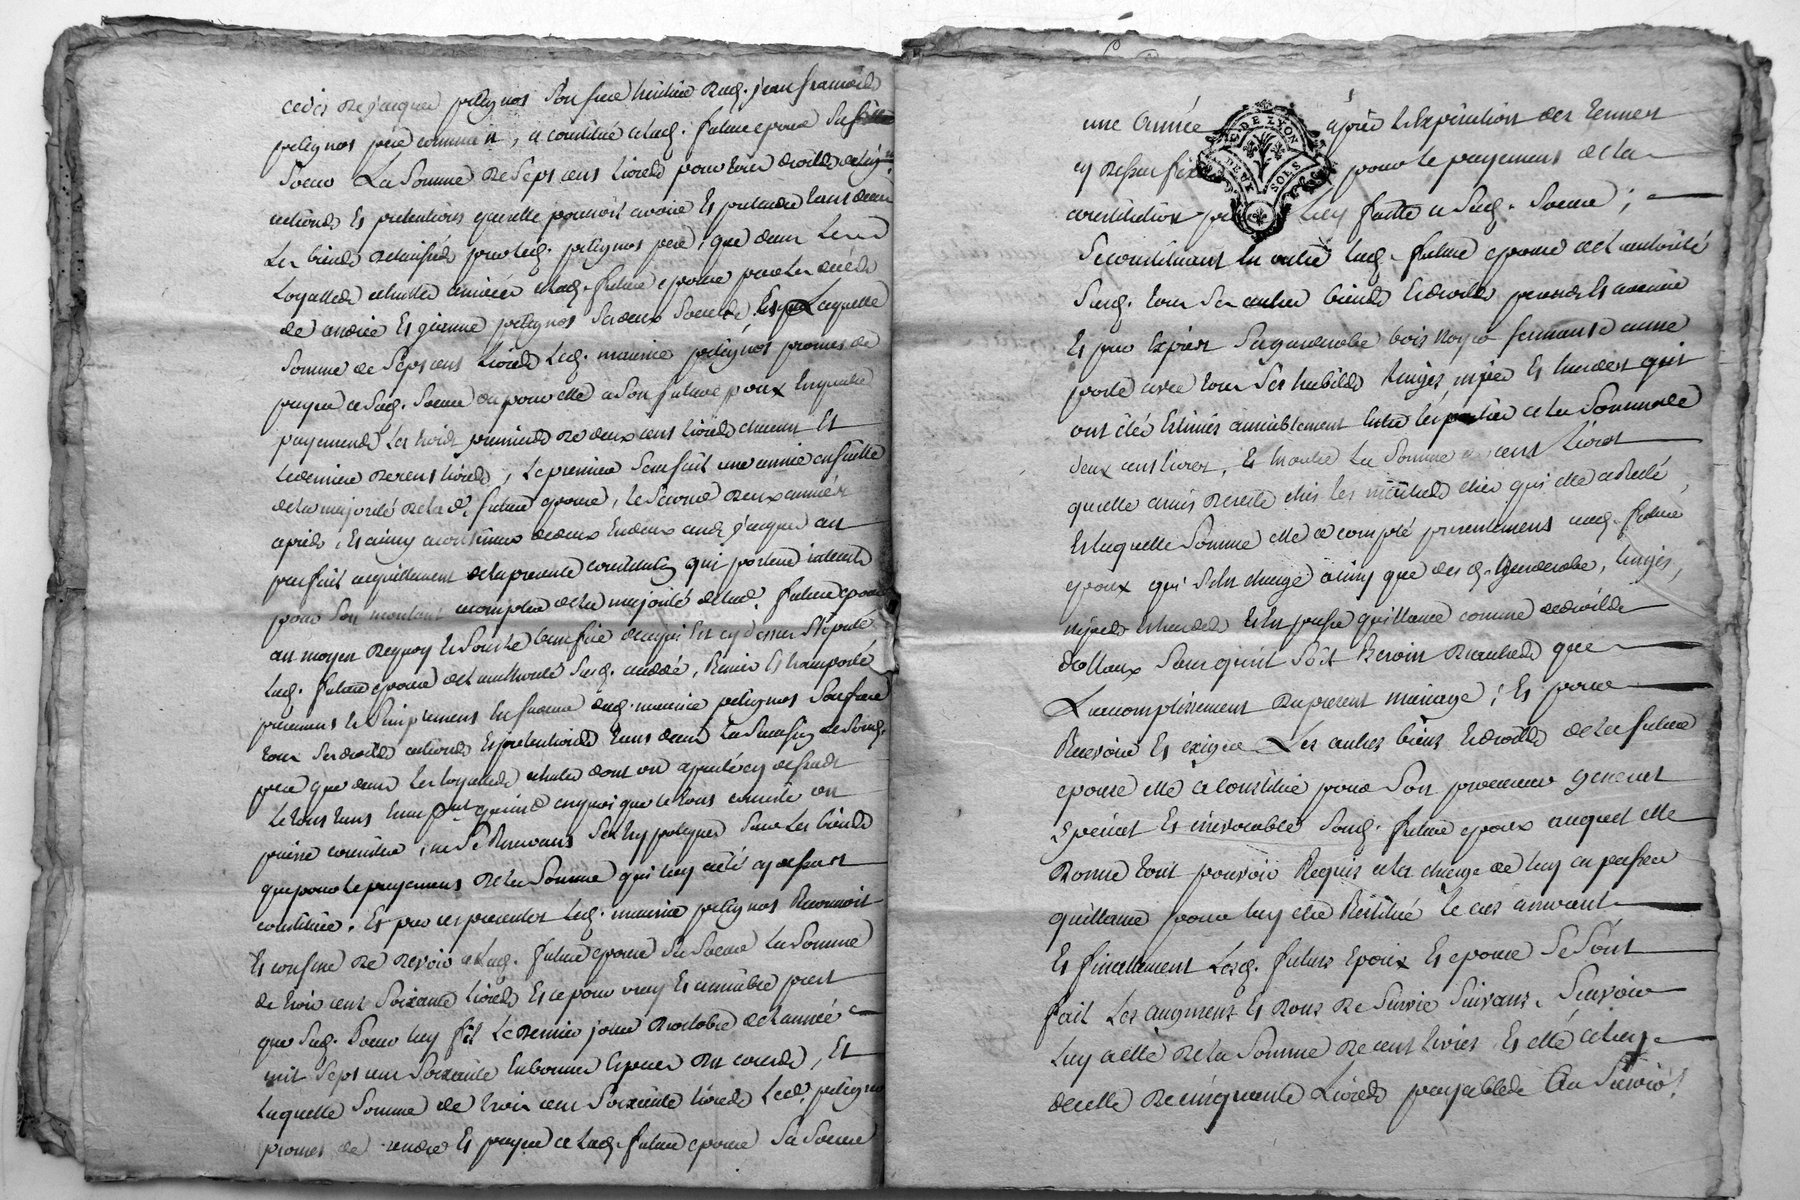 cédés de jacques pelignos son frere heritier dud. jean françois
pelignos père commun, a constitué a lad. future epouse sa
Soeur La Somme de Sept cens Livres pour tous droits
actions Et pretentions quelle pouvoit avoir Et pretendre tans dans
Les biens délaissés par led. pelignos pere, que dans Les
Loyalles échutes arrivées a lad. future epouse par Les decés
de andrée Et jeanne pelignos Ses deux Soeurs Laquelle
Somme de Sept cens Livres Led. maurice peligños promet de
payer a Sad. Soeur ou pour elle a Son futur epoux En quatre
payements Les trois premiers de deux cens livres chacun Et
Le dernier de cens livres, Le premier Sera fait une année ensuitte
de la majorité de lad. future epouse, le Second deux années
après, Et ainsy a continuer de deux En deux ans jusques au
parfait acquittement de la presente constitution qui portera interests
pour Son montant a compter de la majorité de lad. future epouse
au moyen de quoy Et Sous le benefice de ce qui Est cy dessus Stipulé
Lad. future epouse de l'authorité Susd. a cédé, Remis Et transporté
purement Et Simplement En faveur dud. maurice peligños Son frere
tous Ses droits actions Et pretentions tans dans La Succession de Sond.
pere que dans Les loyalles échutes dont on a parlé cy dessus
Le tous tans en quoi que le tous consiste ou
puisse consister, ne Se Reservans Sa hypoteque Sur Les biens
que pour le payement de la Somme qui luy a été cy dessus
constituée. Et par ces presentes Led. maurice peligños Reconnoit
Et confesse de devoir a Lad. future epouse Sa Soeur La Somme
de trois cent Soixante livres Et ce pour vray Et amiable prest
que Sad. Soeur luy fit Le dernier jour d'octobre de l'année
mil Sept cens Soixante En bonnes Especes du cours, Et
Laquelle Somme de trois cens Soixante livres Led. peligños
promet de rendre Et payer a Lad. future epouse Sa Soeur
une Année après L'expiration des termes
cy dessus fixés pour le payement de la
constitution par Luy faitte a Sad. Soeur;
G. DE LYON
DEUX SOLS
Se constituant En outre Lad. future epouse de L'authorité
Susd. tous Ses autres biens Et droits presents Et avenir
Et par Exprès Sa garderobe bois noyer fermant a une
porte avec tous Ses habits linges nipes Et hardes qui
ont été Estimés amiablement Entre les parties a la Somme de
deux cens livres, Et En outre La Somme de cens Livres
quelle a mis de reste chès les maitres chès qui elle a resté,
Et laquelle Somme elle a compté presentement aud. future
epoux qui S'en charge ainsy que des d. garderobe, linges,
nipes et hardes Et En passe quittance comme de droits
dottaux Sans quil Soit besoin d'autres que
L'accomplissement du present mariage; Et pour
Recevoir Et exiger Les autres biens Et droits de la future
epouse elle a Constitué pour Son procureur general
Special Et irrevocable Sond. futur epoux auquel elle
donne tout pouvoir Requis a la charge de luy en passer
quittance pour luy etre Restitué le cas arrivant
Et finalement Lesd. futurs Epoux Et epouse Se Sont
fait Les augment Et dons de Survie Suivans, Sçavoir
Luy a elle de la Somme de cent livres Et elle a luy
decelle de cinquante Livres payables Au Survivᵗ